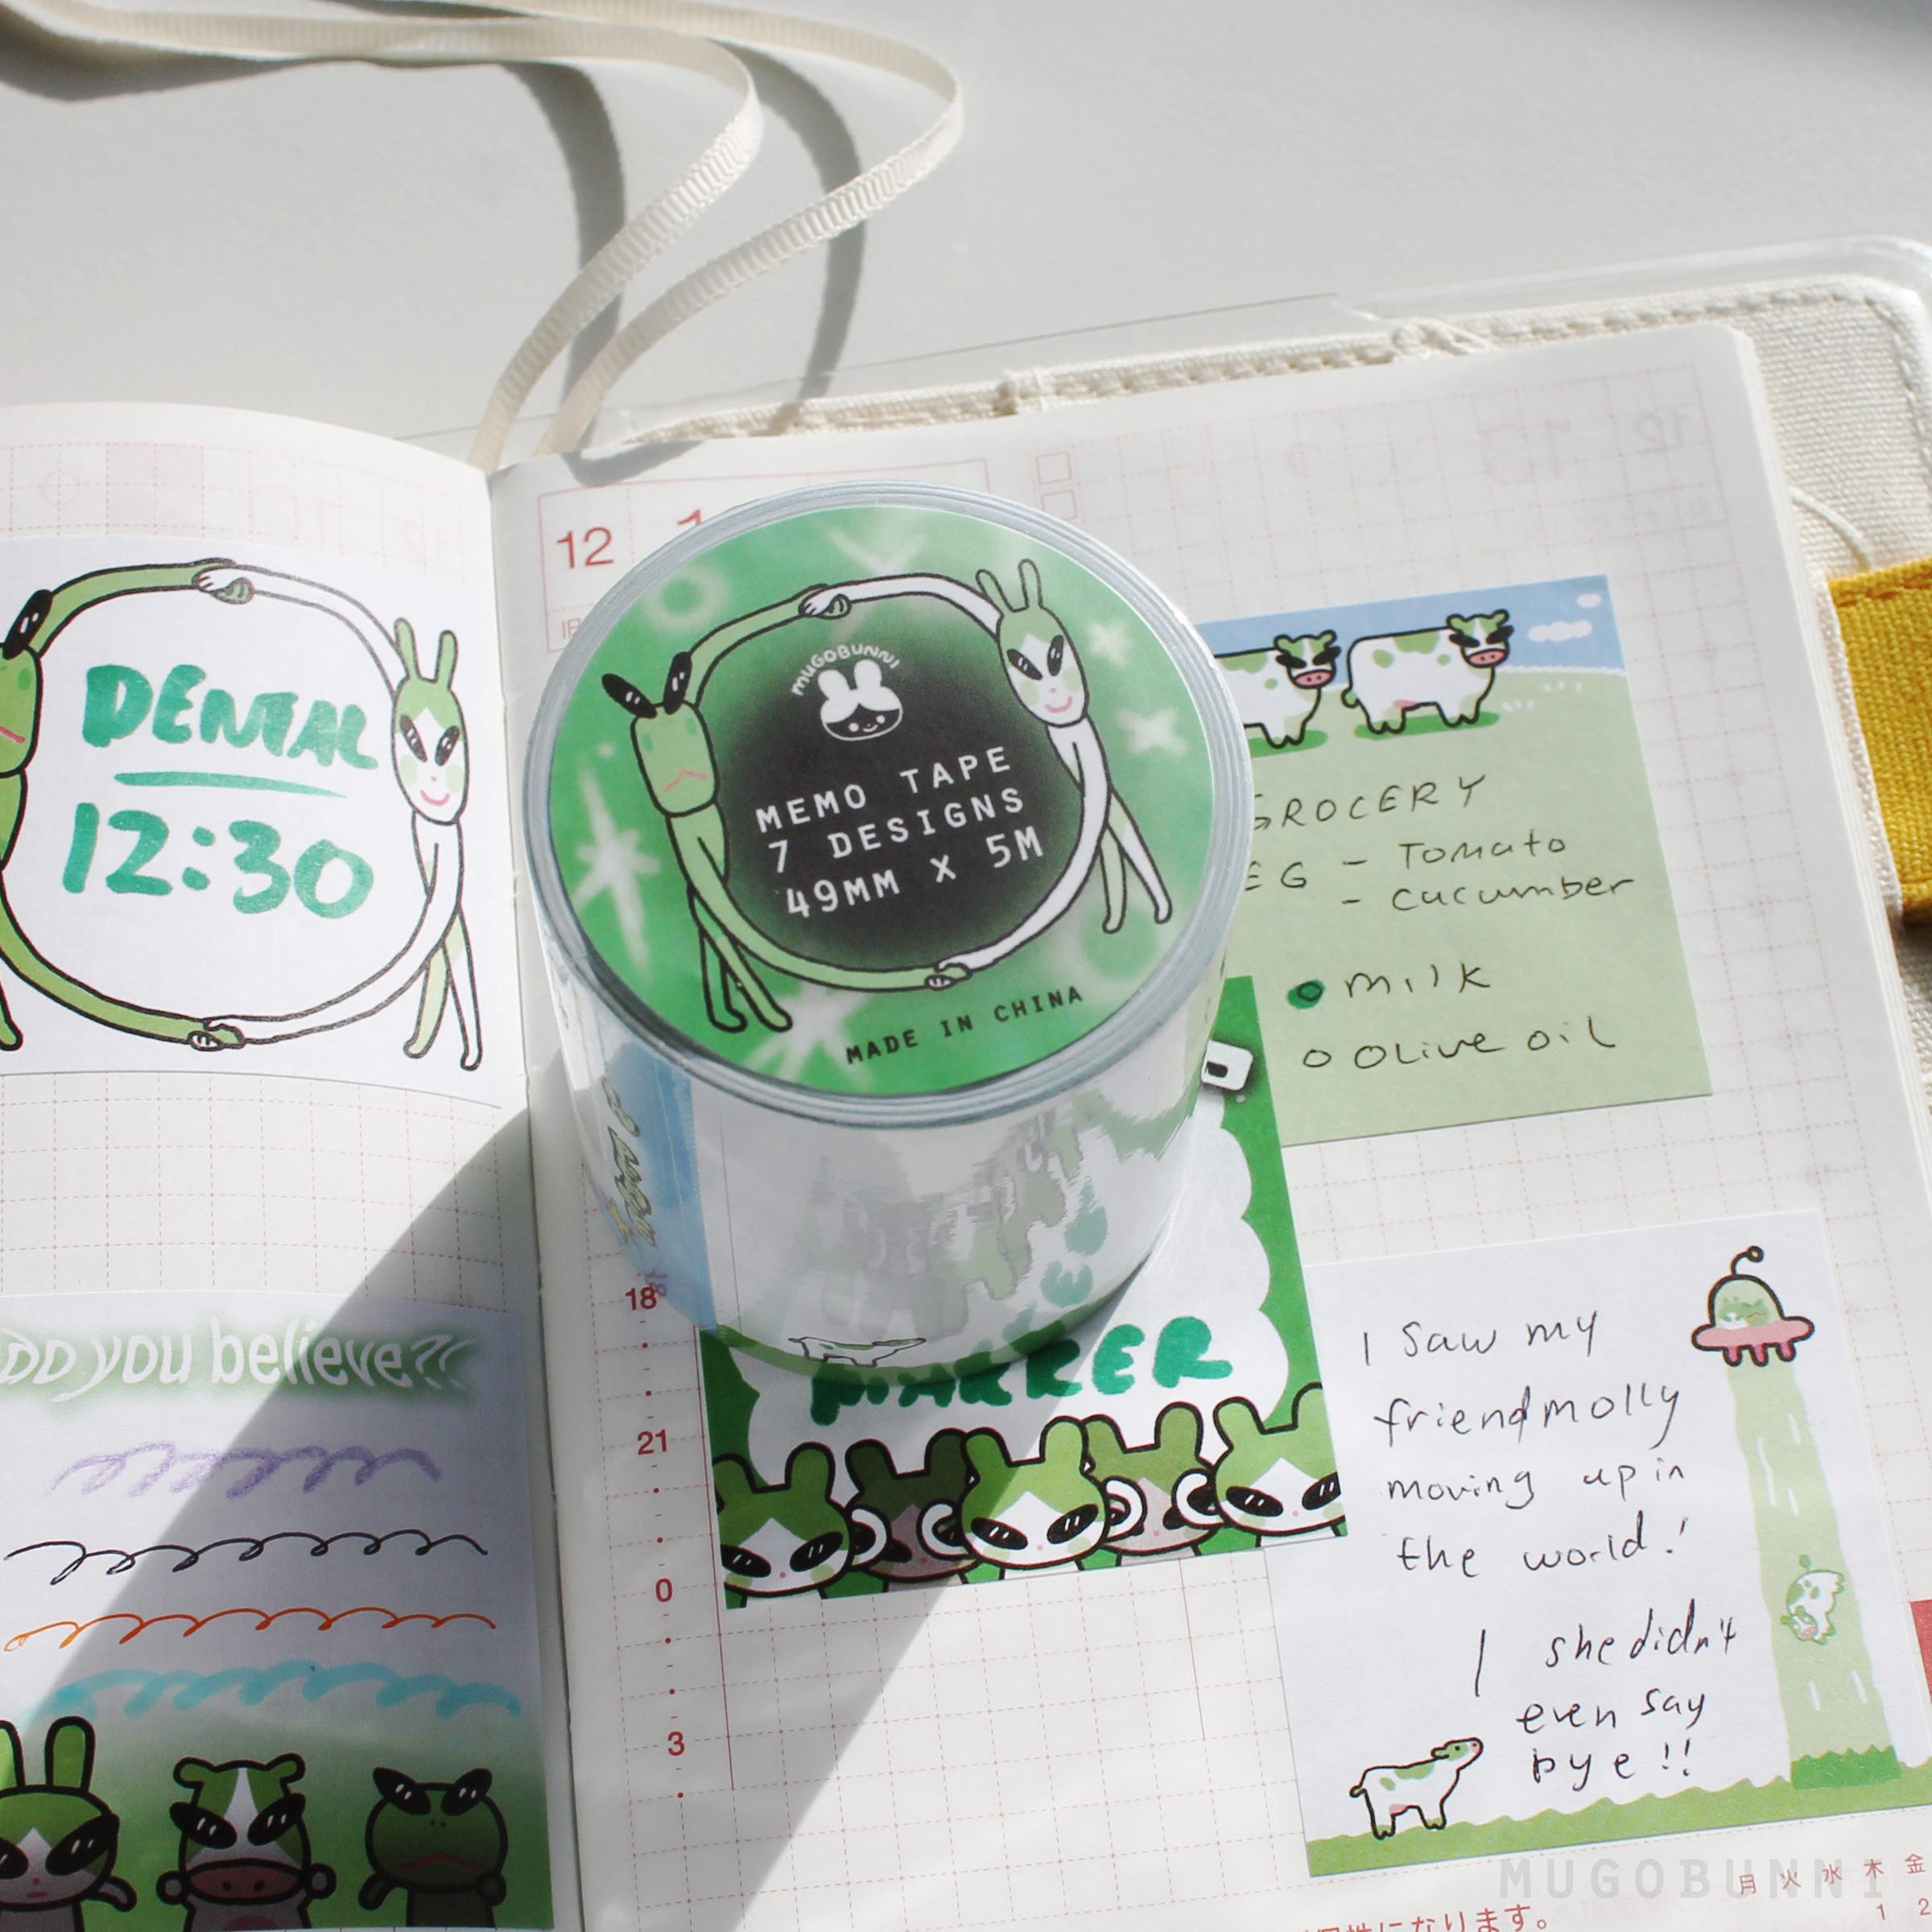 DENTAL
12:30
Do you believe?!
12
MUGOBUNNI
MEMO TAPE
7 DESIGNS
49MM X 5M
MADE IN CHINA
GROCERY
- Tomato
- cucumber
milk
olive oil
18
21
0
3
MARKER
I saw my
friend molly
moving up in
the world!
she didn't
even say
bye!!
MUGOBUNNI
月 火 水 木 金
1 2
になります。